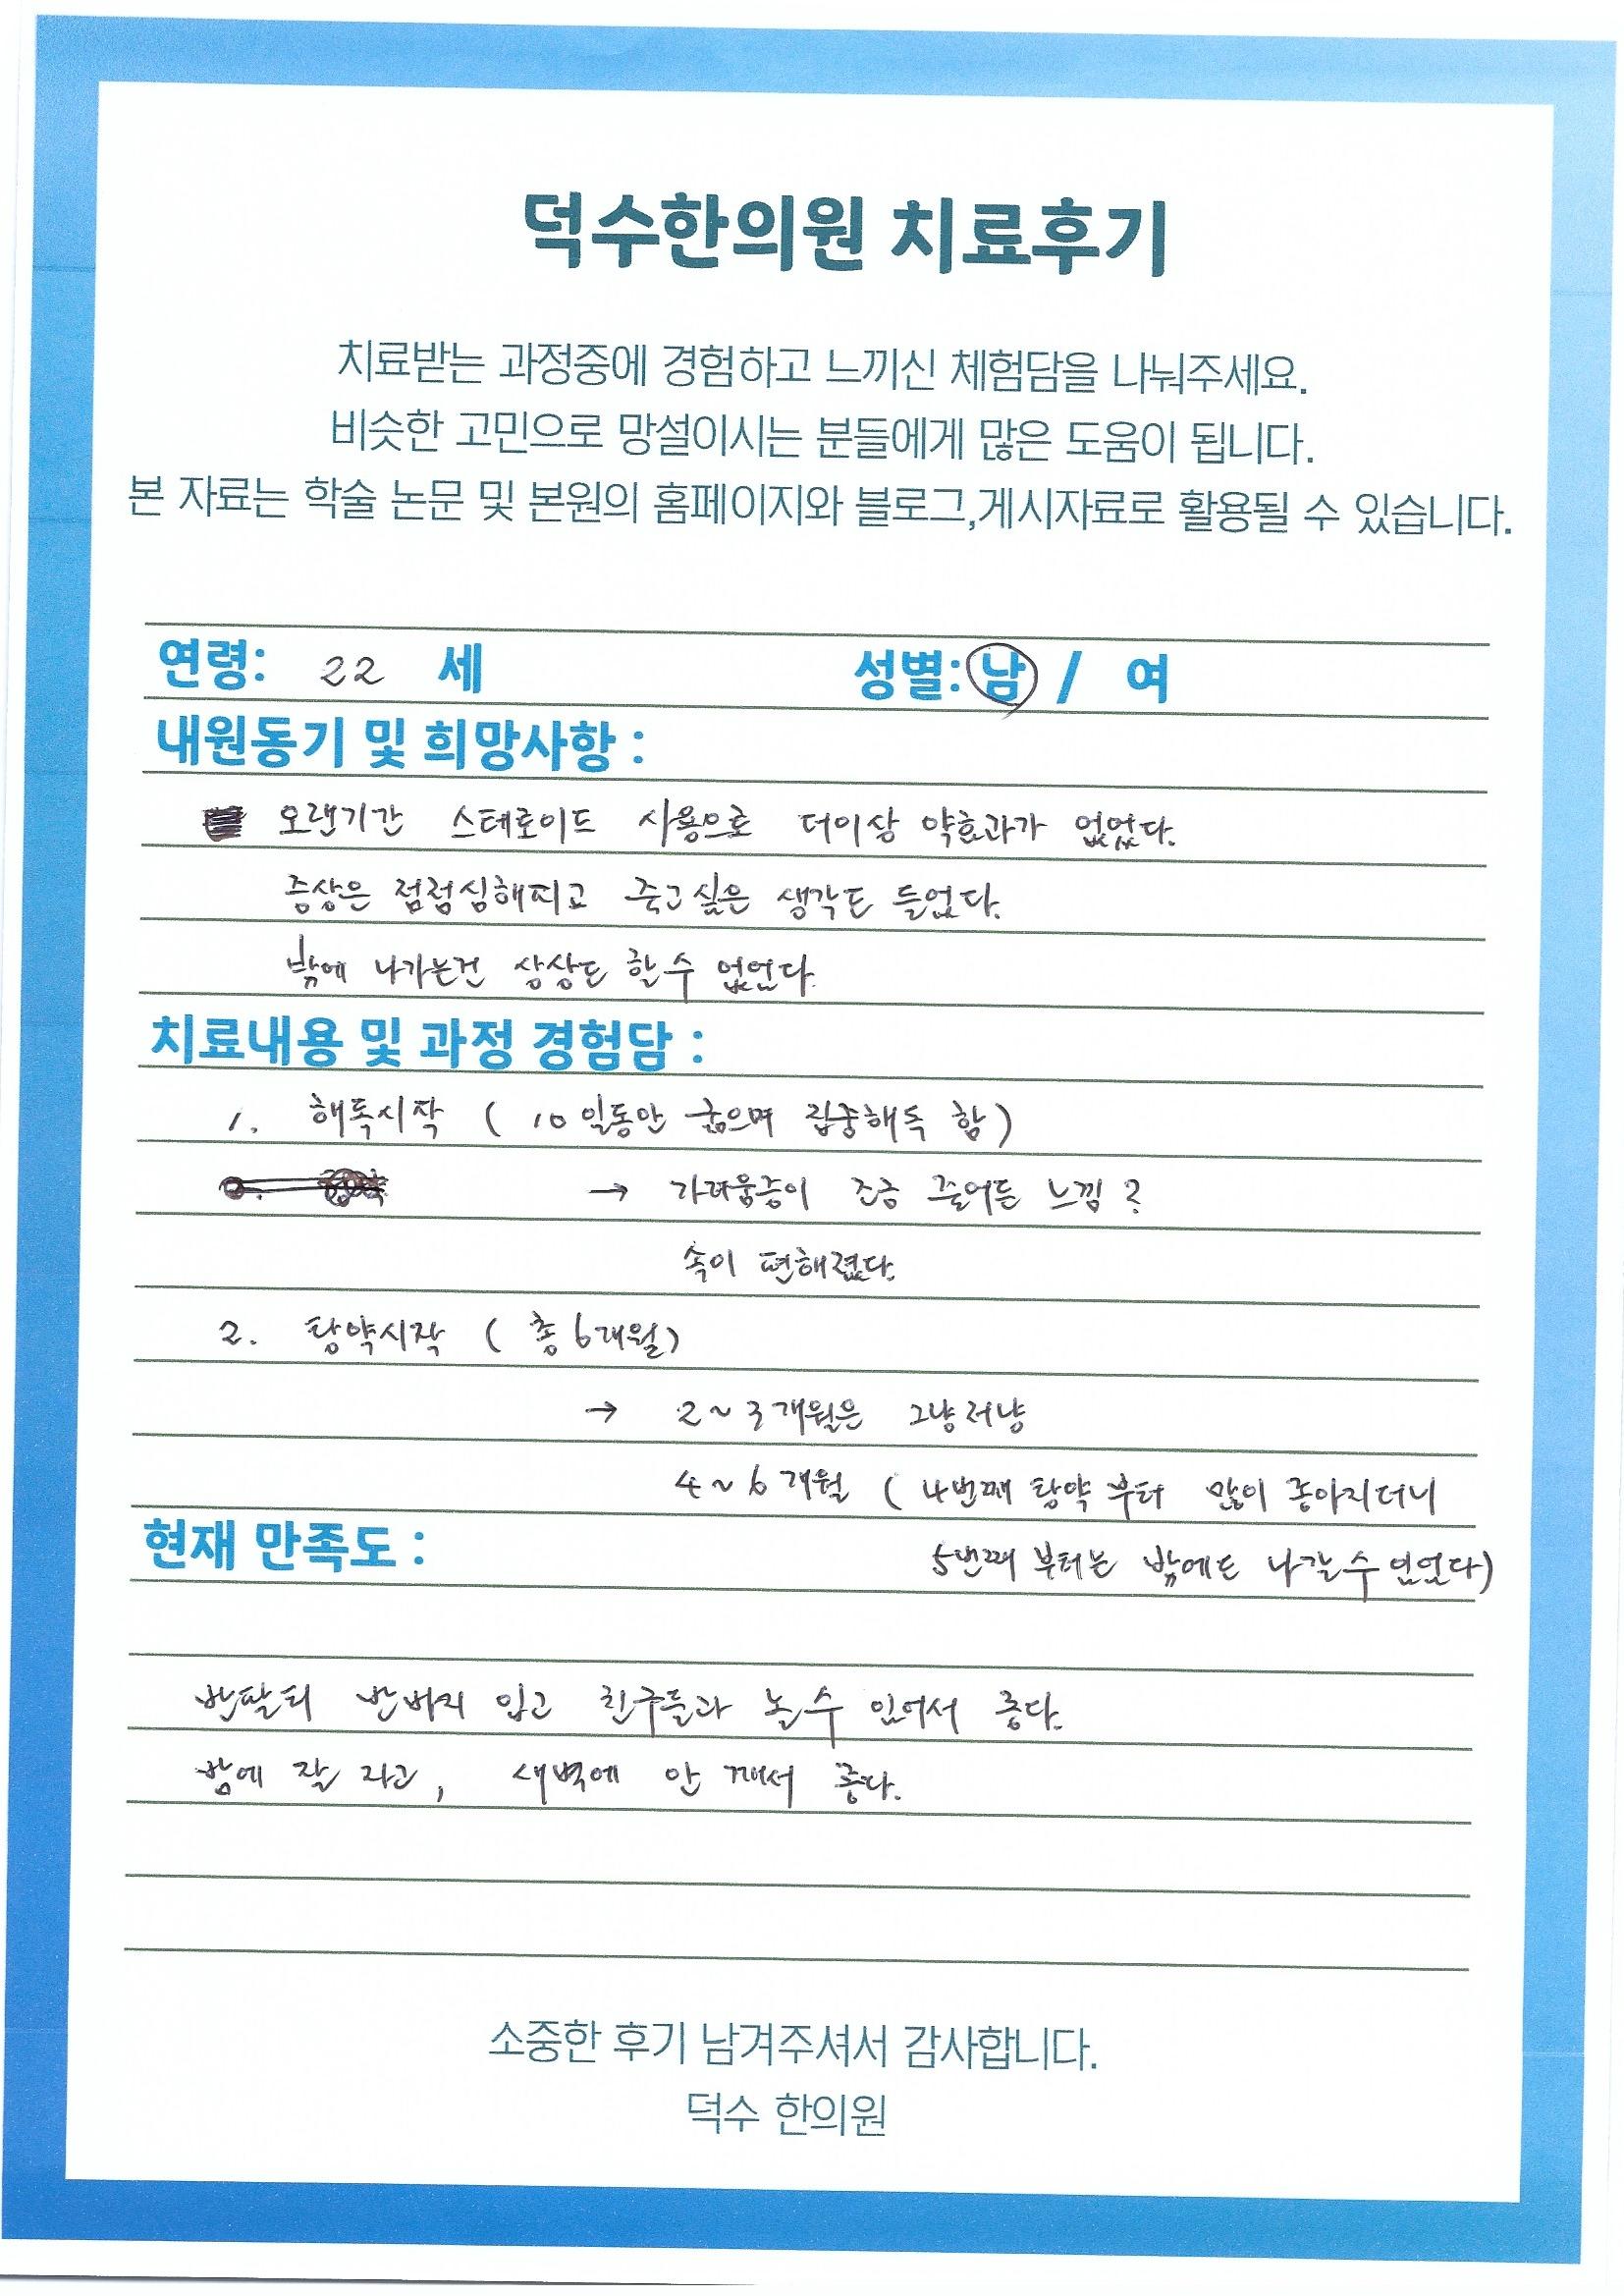 덕수한의원 치료후기
치료받는 과정중에 경험하고 느끼신 체험담을 나눠주세요.
비슷한 고민으로 망설이시는 분들에게 많은 도움이 됩니다.
본 자료는 학술 논문 및 본원의 홈페이지와 블로그,게시자료로 활용될 수 있습니다.
연령: 22 세 성별: 남 / 여
내원동기 및 희망사항 :
오랜기간 스테로이드 사용으로 더이상 약효과가 없었다.
증상은 점점심해지고 죽고싶은 생각도 들었다.
밖에 나가는건 상상도 할수 없었다.
치료내용 및 과정 경험담 :
1. 해독시작 ( 10일동안 굶으며 집중해독 함)
→ 가려움증이 조금 줄어든 느낌?
속이 편해졌다.
2. 탕약시작 ( 총 6개월)
→ 2~3개월은 그냥저냥
4~6개월 ( 4번째 탕약 부터 많이 좋아지더니
현재 만족도 : 5번째 부터는 밖에도 나갈수있었다)
반팔티 반바지 입고 친구들과 놀수 있어서 좋다.
밤에 잘 자고, 새벽에 안 깨서 좋다.
소중한 후기 남겨주셔서 감사합니다.
덕수 한의원